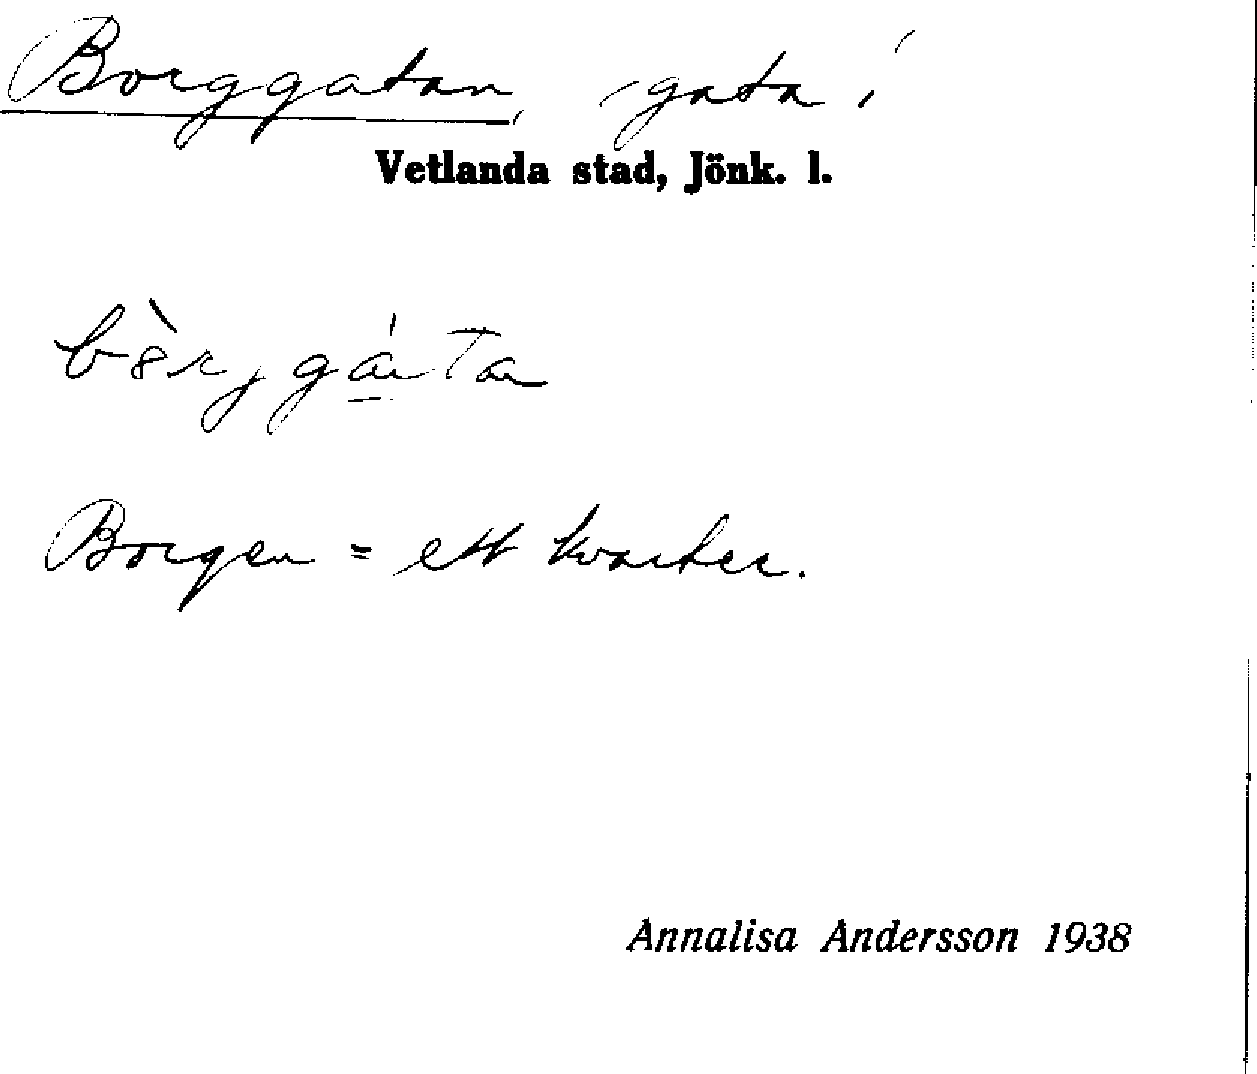 Borggatan, gata i
Vetlanda stad, Jönk. l.
Borgen = ett kvarter.
Annalisa Andersson 1938